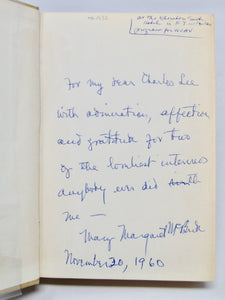 at the Sheraton
For my dear Charles Lee
with admiration, affection
and gratitude for two
of the loveliest interviews
anybody ever did with
me —
Mary Margaret McBride
November 20, 1960